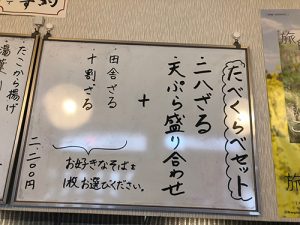 たべくらべセット
・二八ざる
＋
・天ぷら盛り合わせ
・田舎ざる
・十割ざる
お好きなそばを
1枚、お選びください。
二、二〇〇円
・たこから揚げ
・湯葉
旅
旅